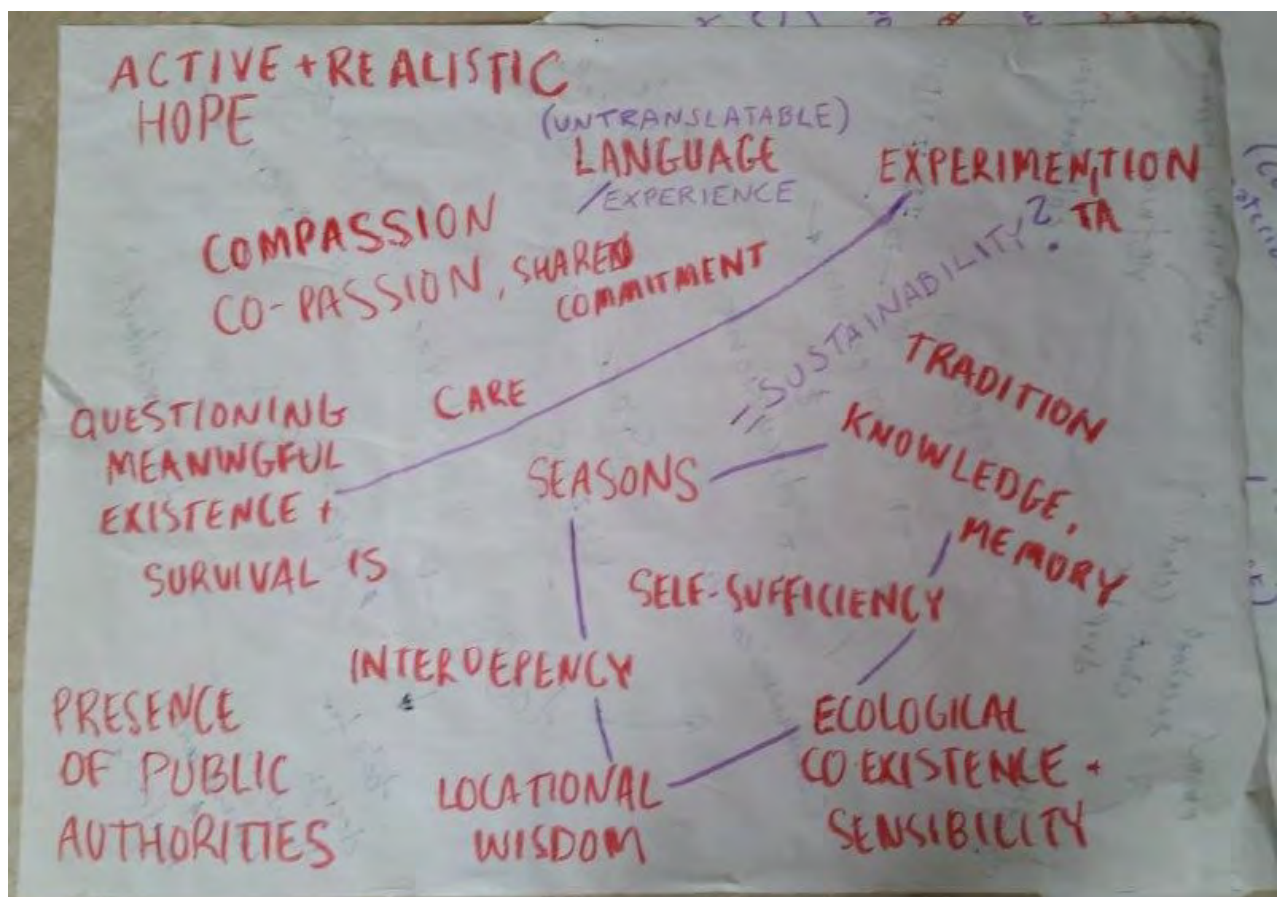 ACTIVE + REALISTIC
HOPE
(UNTRANSLATABLE)
LANGUAGE
/EXPERIENCE
EXPERIMENTION
TA
COMPASSION
CO-PASSION, SHARED
COMMITMENT
= SUSTAINABILITY?
TRADITION
KNOWLEDGE,
MEMORY
CARE
QUESTIONING
MEANINGFUL
EXISTENCE +
SURVIVAL IS
SEASONS
SELF-SUFFICIENCY
INTERDEPENCY
PRESENCE
OF PUBLIC
AUTHORITIES
LOCATIONAL
WISDOM
ECOLOGICAL
CO EXISTENCE +
SENSIBILITY